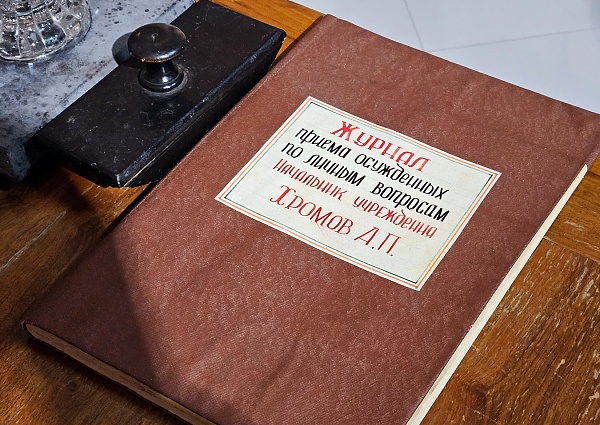 Журнал
приема осужденных
по личным вопросам
Начальник учреждения
Хромов А.П.